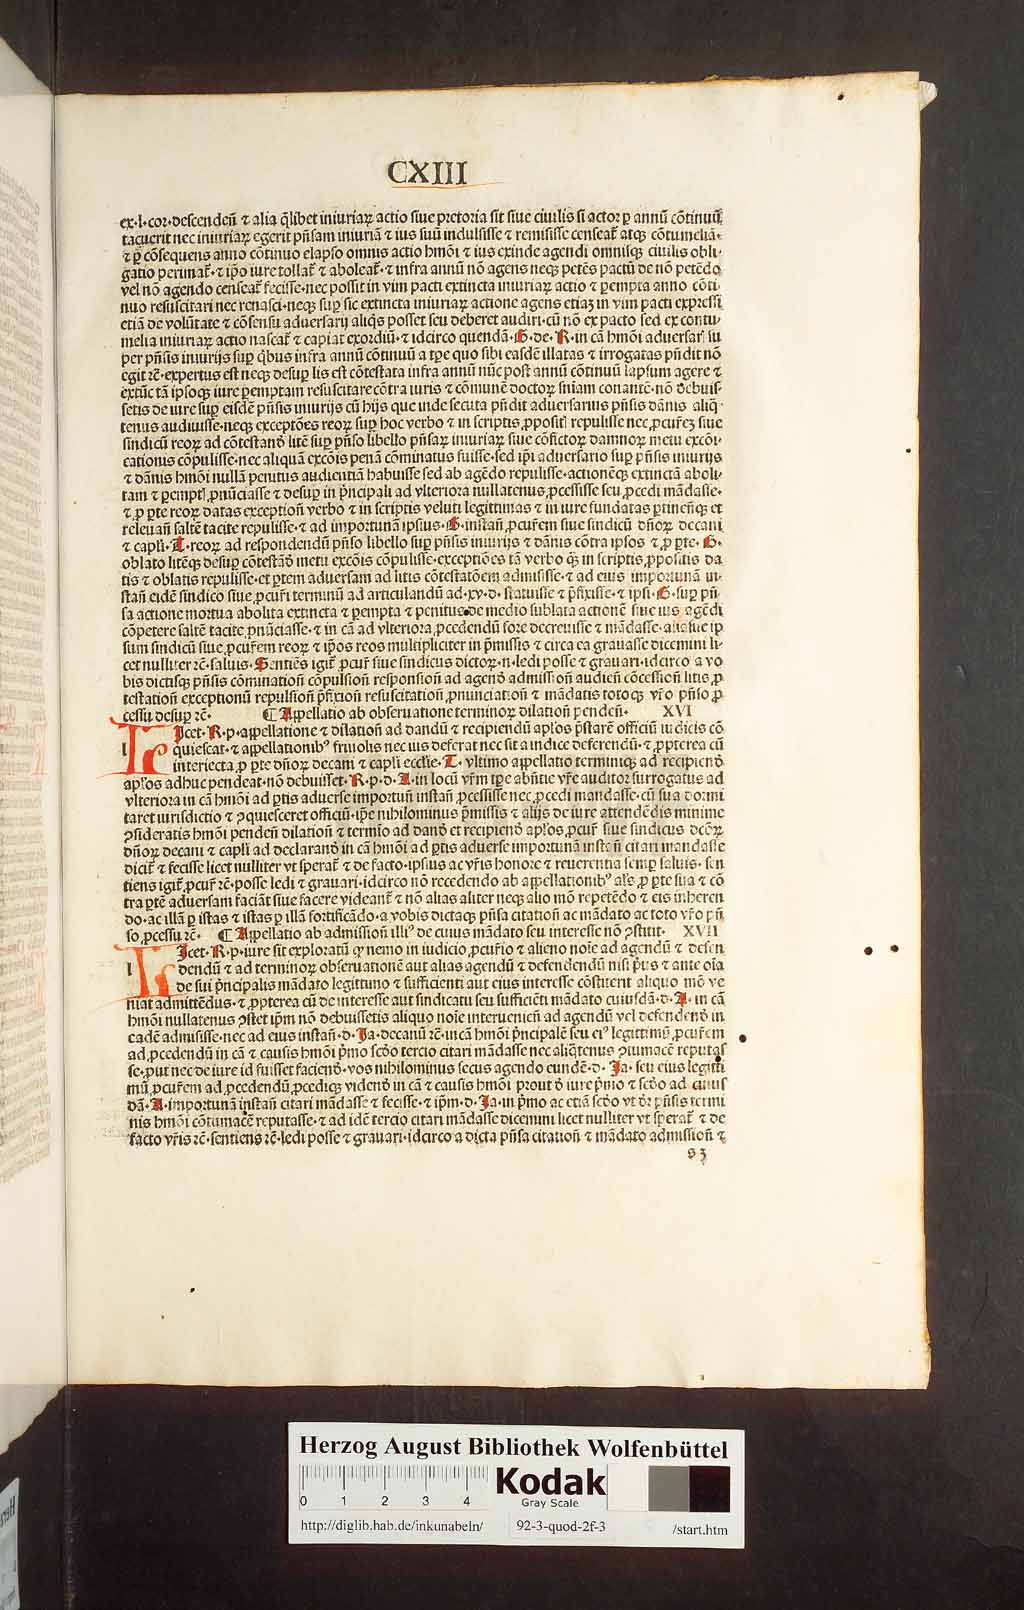 CXIII
ex·l·cor·descendeñ ⁊ alia q̃libet iniuriaꝝ actio siue pretoria sit siue ciuilis si actor ꝑ annũ cõtinuũ
tacuerit nec iniuriaꝝ egerit pñsam iniuriã ⁊ ius suũ indulsisse ⁊ remisisse censeat̃ atqꝫ cõtumeliã·
⁊ ꝑ cõsequens anno cõtinuo elapso omnis actio hmõi ⁊ ius exinde agendi omnisqꝫ ciuilis obli·
gatio perimat̃·⁊ ip̃o iure tollat̃ ⁊ aboleat̃·⁊ infra annũ nõ agens neqꝫ petẽs pactũ de nõ petẽdo
vel nõ agendo censeat̃ fecisse·nec possit in vim pacti extincta iniuriaꝝ actio ⁊ ꝑempta anno cõti·
nuo resuscitari nec renasci·neqꝫ suꝑ sic extincta iniuriaꝝ actione agens etiaꝫ in vim pacti expressi
etiã de volũtate ⁊ cõsensu aduersarij aliq̃s posset seu deberet audiri·cũ nõ ex pacto sed ex contu·
melia iniuriaꝝ actio nascat̃ ⁊ capiat exordiũ·⁊ idcirco quendã·G·de·R·in cã hmõi aduersariũ su
per pñsis iniurijs suꝑ q̃bus infra annũ cõtinuũ a tꝑe quo sibi easdẽ illatas ⁊ irrogatas pñdit nõ
egit ⁊c̃·expertus est neqꝫ desuꝑ lis est cõtestata infra annũ nũc post annũ cõtinuũ lapsum agere ⁊
extũc tã ipsoqꝫ iure ꝑemptam resuscitare cõtra iuris ⁊ cõmunẽ doctoꝝ sniam conantẽ·nõ debuis·
setis de iure suꝑ eisdẽ pñsis iniurijs cũ hijs que inde secuta pñdit aduersarius pñsis dãnis aliq̃·
tenus audiuisse·neqꝫ exceptões reoꝝ suꝑ hoc verbo ⁊ in scriptis ꝓpositas repulisse nec ꝓcur̃eꝫ siue
sindicũ reoꝝ ad cõtestand̃ litẽ suꝑ pñso libello pñsaꝝ iniuriaꝝ siue cõfictoꝝ damnoꝝ metu excõi·
cationis cõpulisse·nec aliquã excõis penã cõminatus fuisse·sed ip̃i aduersario suꝑ pñsis iniurijs
⁊ dãnis hmõi nullã penitus audientiã habuisse sed ab agẽdo repulisse·actionẽqꝫ extinctã aboli·
tam ⁊ ꝑemptã ꝓnũciasse ⁊ desuꝑ in p̃ncipali ad vlteriora nullatenus ꝓcessisse seu ꝓcedi mãdasse·
⁊ ꝓ ꝑte reoꝝ datas exception̄ verbo ⁊ in scriptis veluti legittimas ⁊ in iure fundatas ꝑtineñqꝫ et
releuañ saltẽ tacite repulisse·⁊ ad importunã ipsius·G·instañ ꝓcur̃em siue sindicũ dñoꝝ decani
⁊ capl̃i·T·reoꝝ ad respondendũ pñso libello suꝑ pñsis iniurijs ⁊ dãnis cõtra ipsos ⁊ ꝓ ꝑte·G·
oblato litẽqꝫ desuꝑ cõtestãd̃ metu excõis cõpulisse·exceptiões tã verbo q̃ꝫ in scriptis ꝓpositis da
tis ⁊ oblatis repulisse·et ꝑtem aduersam ad litis cõtestatõem admisisse·⁊ ad eius importunã in·
stañ eidẽ sindico siue ꝓcur̃i terminũ ad articulandũ ad·xv·d·statuisse ⁊ p̃fixisse·⁊ ipsi·G·suꝑ pñ
sa actione mortua abolita extincta ⁊ ꝑempta ⁊ penitus de medio sublata actionẽ siue ius agẽdi
cõpetere saltẽ tacite ꝓnũciasse·⁊ in cã ad vlteriora ꝓcedendũ fore decreuisse ⁊ mãdasse·aliasue ip
sum sindicũ siue ꝓcur̃em reoꝝ ⁊ ip̃os reos multipliciter in p̃missis ⁊ circa ea grauasse dicemini li·
cet nulliter ⁊c̃·saluis·Sentiẽs igit̃ ꝓcur̃ siue sindicus dictoꝝ·n·ledi posse ⁊ grauari·idcirco a vo
bis dictisqꝫ pñsis cõminatioñ cõpulsioñ responsioñ ad ageñd̃ admissioñ audieñ cõcessioñ litis ꝓ
testatioñ exceptionũ repulsioñ p̃fixioñ resuscitatioñ ꝓnunciatioñ ⁊ mãdatis totoqꝫ vr̃o pñso ꝓ
cessu desuꝑ ⁊c̃· ¶ Appellatio ab obseruatione terminoꝝ dilatioñ pendeñ· XVI
LIcet·R·p·appellatione ⁊ dilatioñ ad dandũ ⁊ recipiendũ apl̃os p̃stare officiũ iudicis cõ
quiescat·⁊ appellationibꝰ friuolis nec ius deferat nec sit a iudice deferendũ·⁊ ꝓpterea cũ
interiecta ꝓ ꝑte dñoꝝ decani ⁊ capl̃i eccl̃ie·T·vltimo appellatio terminusqꝫ ad recipieñd̃
apl̃os adhuc pendeat·nõ debuisset·R·p·d·A·in locũ vr̃m tꝑe abñtie vr̃e auditor surrogatus ad
vlteriora in cã hmõi ad ꝑtis aduerse importuñ instañ ꝓcessisse nec ꝓcedi mandasse·cũ sua dormi
taret iurisdictio ⁊ ꝯquiesceret officiũ·ip̃e nihilominus p̃missis ⁊ alijs de iure attendẽdis minime
ꝯsideratis hmõi pendeñ dilatioñ ⁊ termĩo ad dand̃ et recipieñd̃ apl̃os ꝓcur̃ siue sindicus dcõꝝ
dñoꝝ decani ⁊ capl̃i ad declarand̃ in cã hmõi ad ꝑtis aduerse importunã instañ citari mandasse
dicit̃ ⁊ fecisse licet nulliter vt sperat̃ ⁊ de facto·ipsius ac vr̃is honore ⁊ reuerentia semꝑ saluis·sen
tiens igit̃ ꝓcur̃ ⁊c̃·posse ledi ⁊ grauari·idcirco nõ recedendo ab appellationibꝰ al̃s ꝓ ꝑte sua ⁊ cõ
tra ꝑtẽ aduersam faciãt siue facere videant̃ ⁊ nõ alias aliter neqꝫ alio mõ repetẽdo ⁊ eis inheren
do·ac illã ꝑ istas ⁊ istas ꝑ illã fortificãdo·a vobis dictaqꝫ pñsa citatioñ ac mãdato ac toto vr̃o pñ
so ꝓcessu ⁊c̃· ¶ Appellatio ab admissioñ illiꝰ de cuius mãdato seu interesse nõ ꝯstitit· XVII
LIcet·R·p·iure sit exploratũ ꝙ nemo in iudicio ꝓcur̃io ⁊ alieno noĩe ad agendũ ⁊ defen
dendũ ⁊ ad terminoꝝ obseruationẽ aut alias agendũ ⁊ defendendũ nisi p̃us ⁊ ante oĩa
de sui p̃ncipalis mãdato legittimo ⁊ sufficienti aut eius interesse cõstiterit aliquo mõ ve
niat admittẽdus·⁊ ꝓpterea cũ de interesse aut sindicatu seu sufficiẽti mãdato cuiusdã·d·A·in cã
hmõi nullatenus ꝯstet ip̃m nõ debuissetis aliquo noĩe interuenieñ ad agendũ vel defendend̃ in
cadẽ admisisse·nec ad eius instañ·d·Ja·decanũ ⁊c̃·in cã hmõi p̃ncipalẽ seu eiꝰ legittimũ ꝓcur̃em
ad ꝓcedendũ in cã ⁊ causis hmõi p̃mo scd̃o tercio citari mãdasse nec aliq̃tenus ꝯtumacẽ reputas
se·put nec de iure id fuisset facieñd̃·vos nihilominus secus agendo eundẽ·d·Ja·seu eius legitti
mũ ꝓcur̃em ad ꝓcedendũ ꝓcediqꝫ videnđ in cã ⁊ causis hmõi prout đ iure p̃mo ⁊ scd̃o ad cuius
dã·A·importunã instañ citari mãdasse ⁊ fecisse·⁊ ip̃m·d·Ja·in p̃mo ac etiã scd̃o vt đr pñsis termi
nis hmõi cõtumacẽ reputasse·⁊ ad idẽ tercio citari mãdasse dicemini licet nulliter vt sperat̃ ⁊ de
facto vr̃is ⁊c̃·sentiens ⁊c̃·ledi posse ⁊ grauari·idcirco a dicta pñsa citatioñ ⁊ mãdato admissioñ ⁊
s3
Herzog August Bibliothek Wolfenbüttel
0 1 2 3 4
Kodak
Gray Scale
http://diglib.hab.de/inkunabeln/ 92-3-quod-2f-3 /start.htm